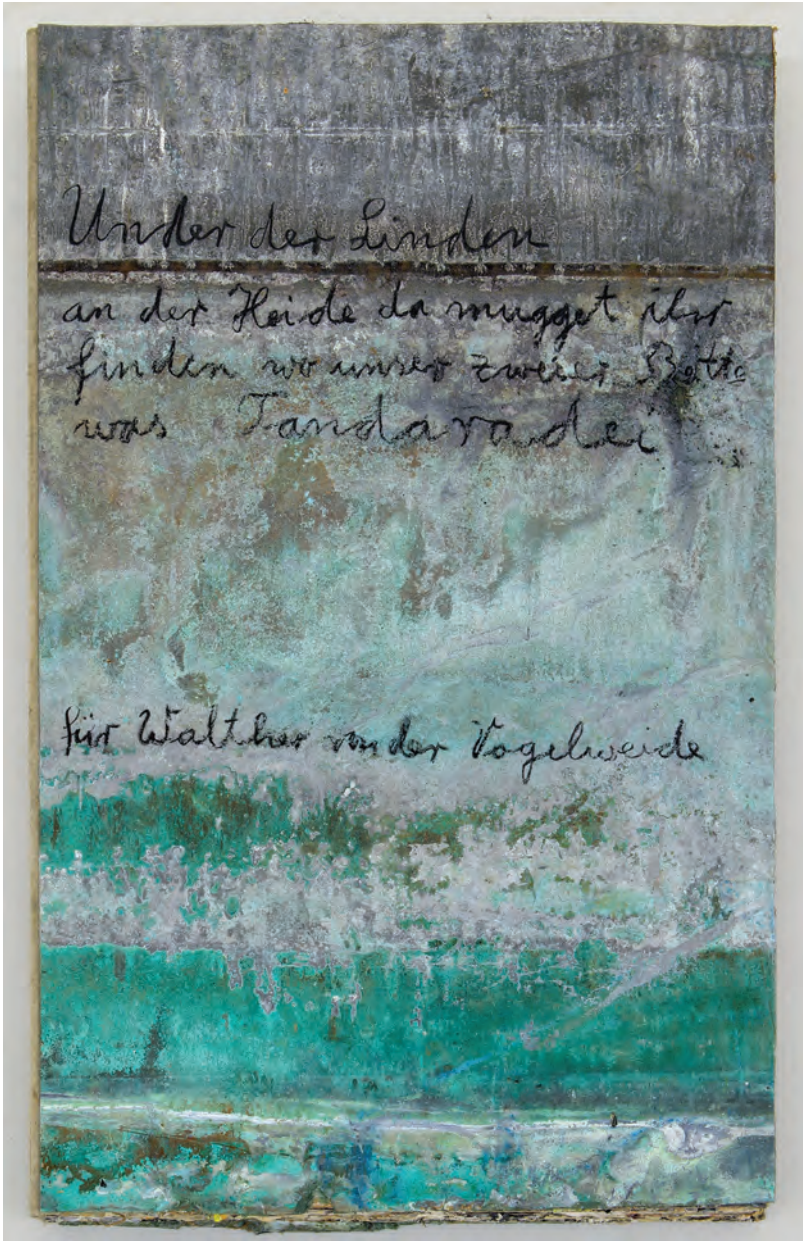 Under der Linden
an der Heide da mugget ihr
finden wo unser zweier Bette
was Tandaradei
für Walther von der Vogelweide